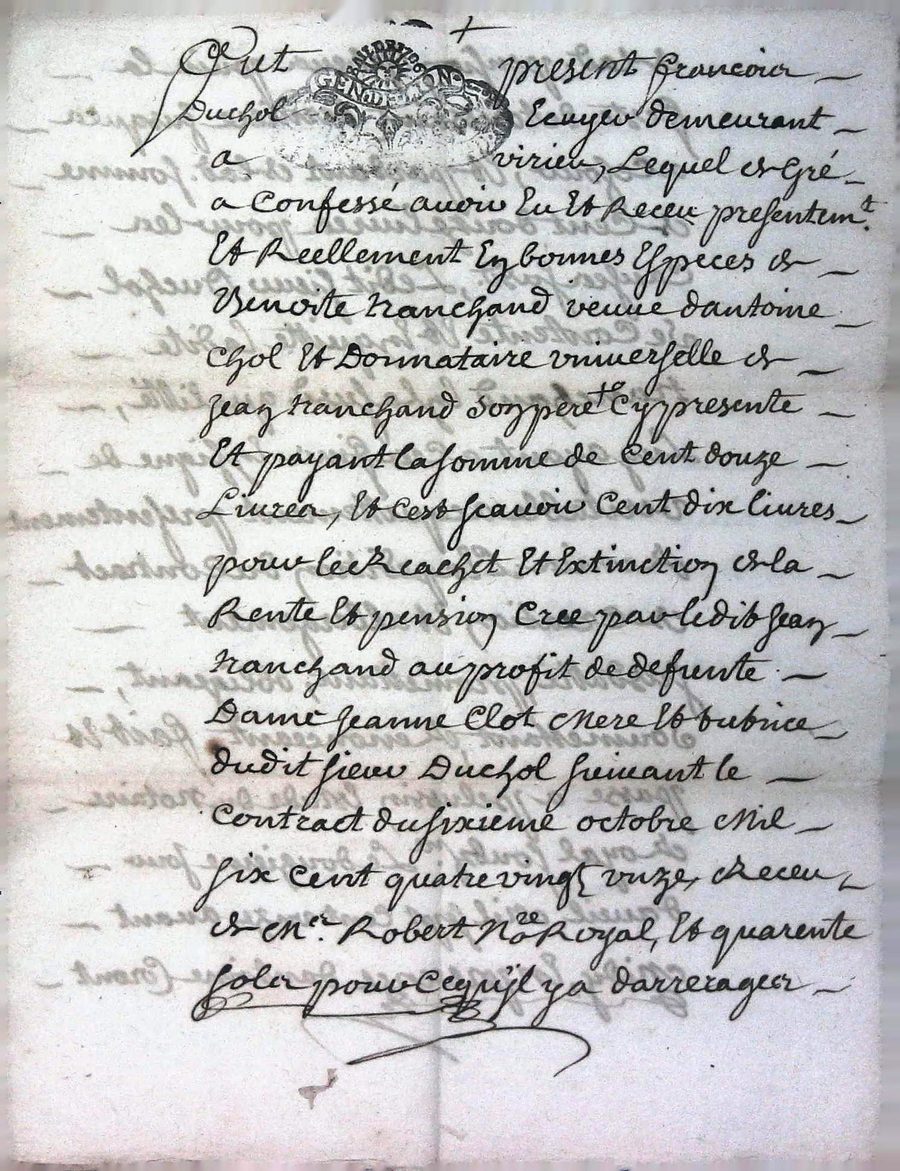 +
Fut present Francois
Duchol Ecuyer demeurant
a virieu, Lequel de Gré
a Confessé avoir Eu Et Receu presentemt.
Et Reellement En bonnes Especes de
Benoite tranchand veuve dantoine
Chol Et Donnataire vniverselle de
Jean tranchand Son pere Cy presente
Et payant la somme de Cent douze
Livres, Et cest scavoir Cent dix livres
pour le Reachet Et Extinction de la
Rente Et pension Creé par ledit Jean
tranchand au profit de defunte
Dame Jeanne Clot Mere Et tutrice
dudit sieur Duchol suivant le
Contract du sixieme octobre Mil
six cent quatre vingt vnze, Receu
de Mer. Robert Nore Royal, Et quarente
sols pour Ce qu'jl y a darrerages